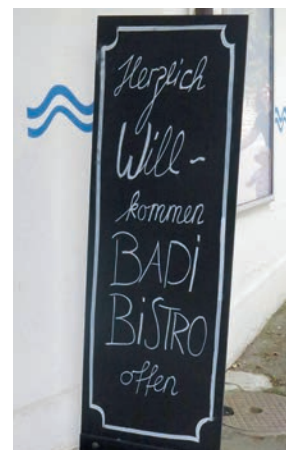 Herzlich
Will-
kommen
BADi
BiSTRO
offen